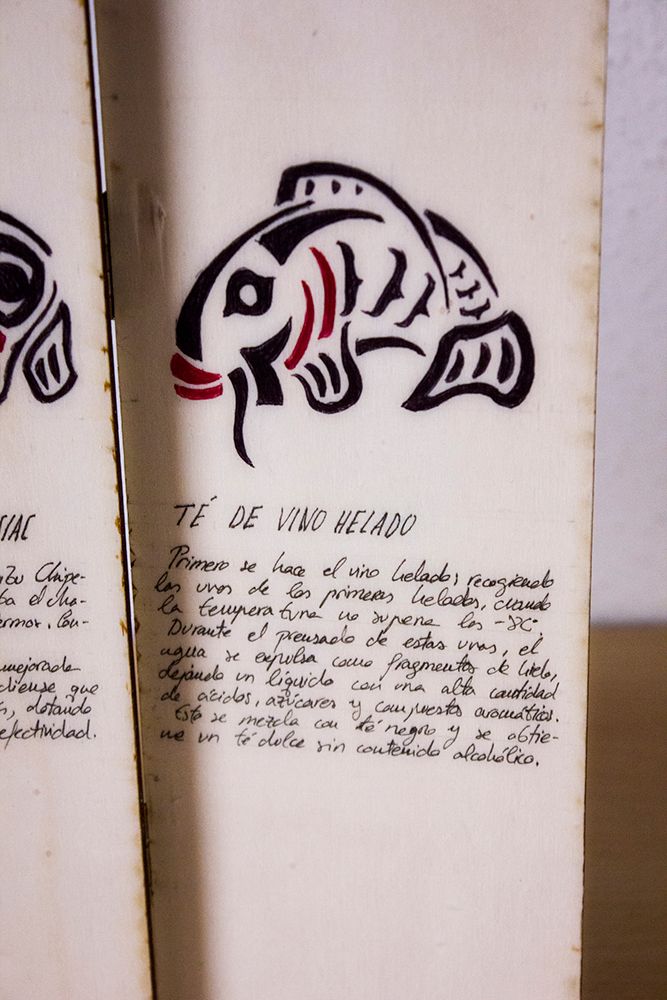 SIAC
Chipe-
ta el cha-
ermor. Con-
mejorada
diense que
, dotando
efectividad.
TÉ DE VINO HELADO
Primero se hace el vino helado; recogiendo
las uvas de las primeras heladas, cuando
la temperatura no supera los -8C.
Durante el prensado de estas uvas, el
agua se expulsa como fragmentos de hielo,
dejando un líquido con una alta cantidad
de ácidos, azúcares y compuestos aromáticos.
Esto se mezcla con té negro y se obtie-
ne un té dulce sin contenido alcohólico.